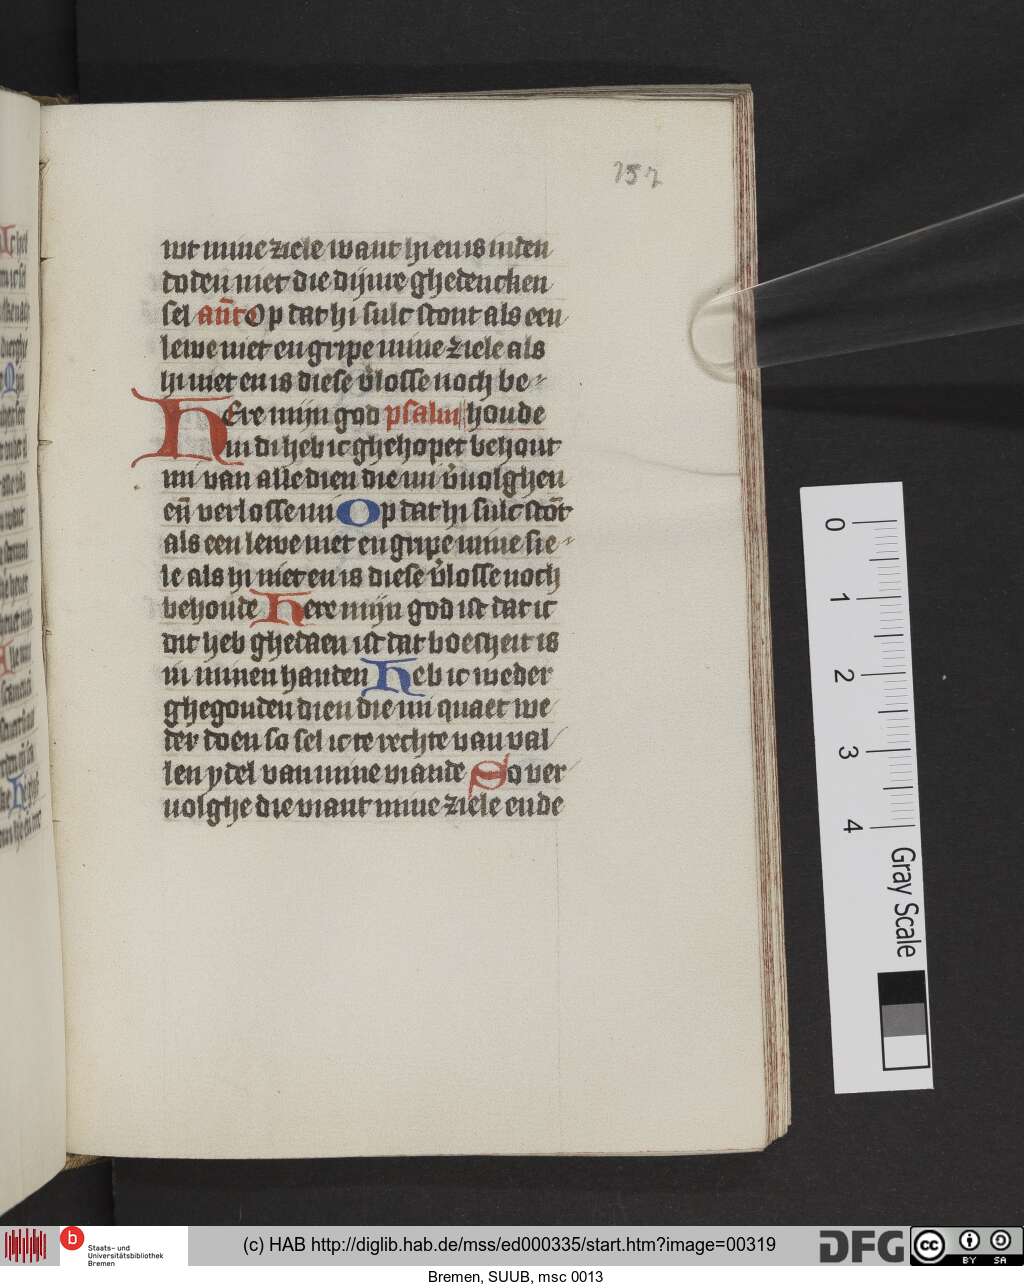 157
wt mine ziele want hi en is inden
doden niet die dijnre ghedencken
sel an̄t Op dat hi sulc stont als een
lewe niet en gripe mine ziele als
hi niet en is diese v̓losse noch be-
HEre mijn god psalm houde
in di heb ic ghehopet behout
mi van alle dien die mi v̓uolghen
en̄ verlosse mi Op dat hi sulc stōt
als een lewe niet en gripe mine sie-
le als hi niet en is diese v̓losse noch
behoude Here mijn god ist dat ic
dit heb ghedaen ist dat boesheit is
in minen handen Heb ic weder
ghegouden dien die mi quaet we
der doen so sel ic te rechte van val
len ydel van mine viande So ver
uolghe die viant mine ziele ende
0
1
2
3
4
Gray Scale
b
Staats- und
Universitätsbibliothek
Bremen
(c) HAB http://diglib.hab.de/mss/ed000335/start.htm?image=00319
DFG
cc
BY
SA
Bremen, SUUB, msc 0013